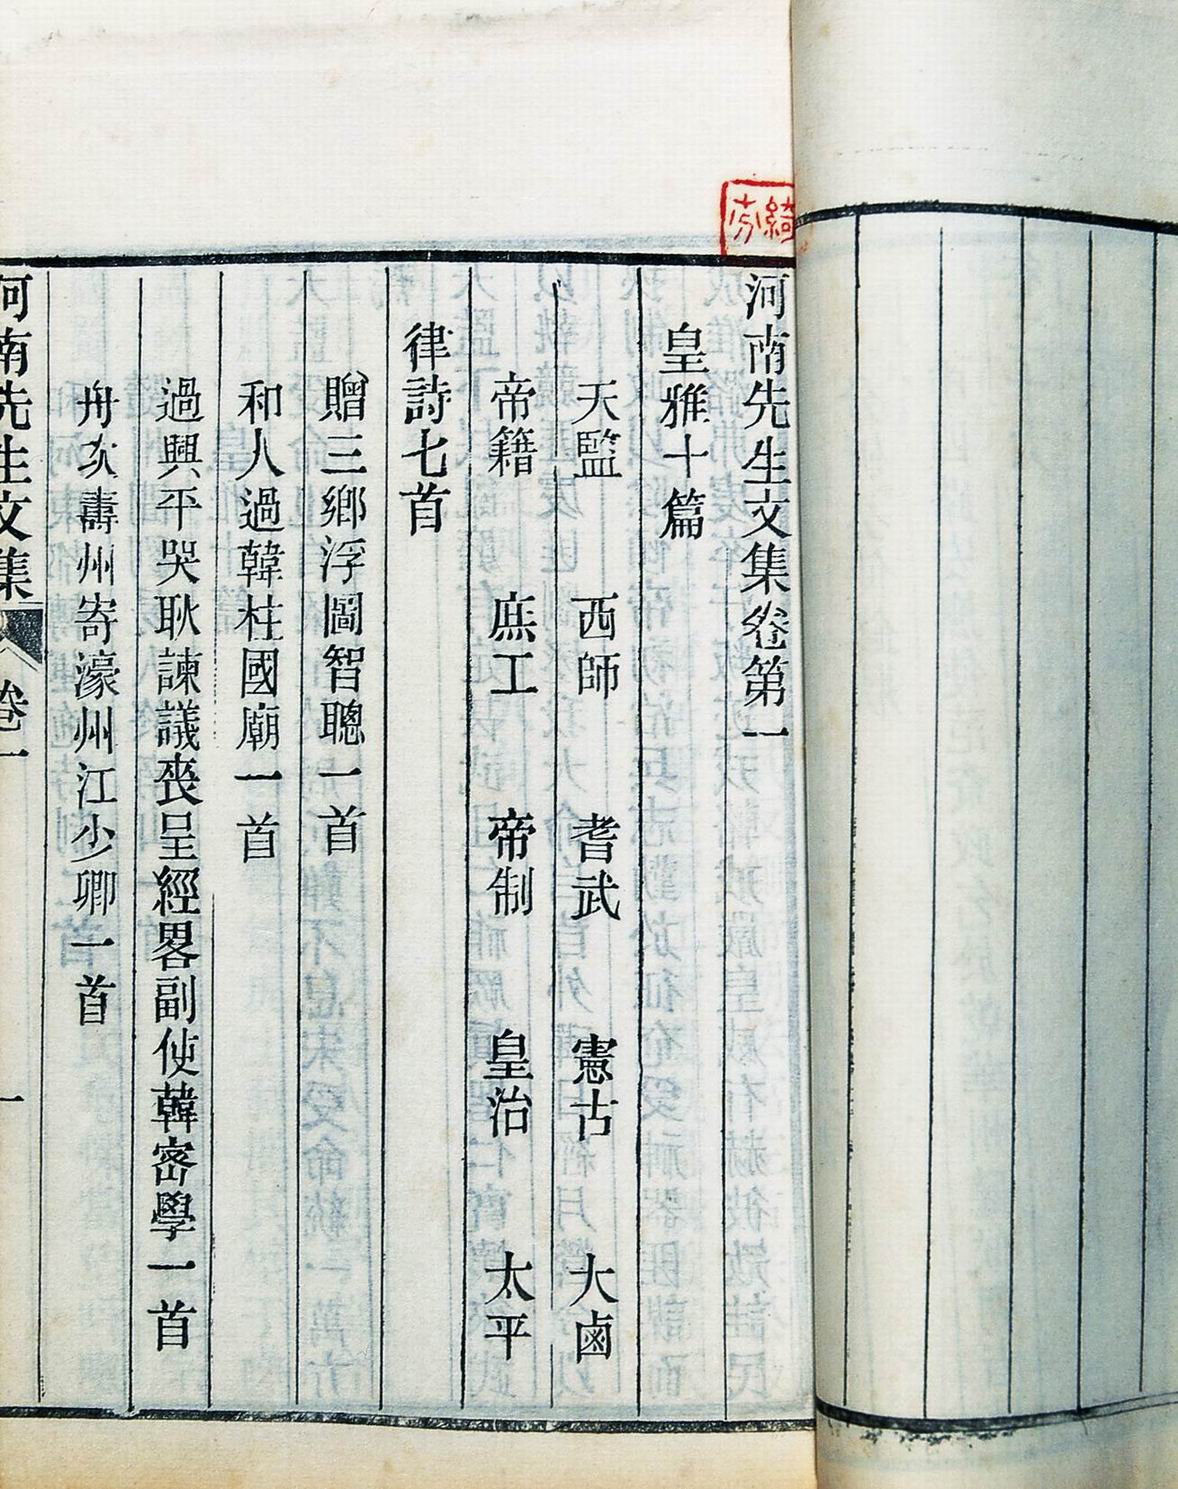 河南先生文集卷第一
皇雅十篇
天監 西師 耆武 憲古 大鹵
帝籍 庶工 帝制 皇治 太平
律詩七首
贈三鄉浮圖智聰一首
和人過韓柱國廟一首
過興平哭耿諫議喪呈經畧副使韓密學一首
舟次壽州寄濠州江少卿一首
河南先生文集 卷一 一